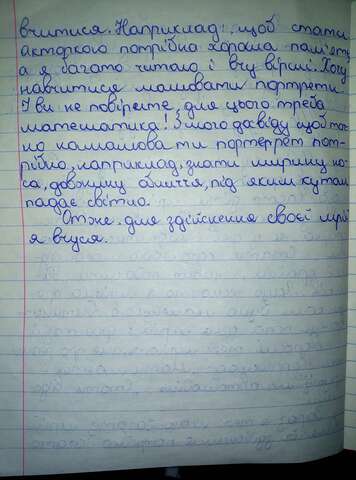 вчитися. Наприклад: щоб стати
акторкою потрібна хороша пам'ять,
а я багато читаю і вчу вірші. Хочу
навчитися малювати портрети.
І ви не повірите, для цього треба
математика! З мого досвіду щоб точ-
но намалювати портерет пот-
рібно, наприклад, знати ширину но-
са, довжину обличчя, під яким кутом
падає світло.
Отже. для здійснення своєї мрії
я вчуся.